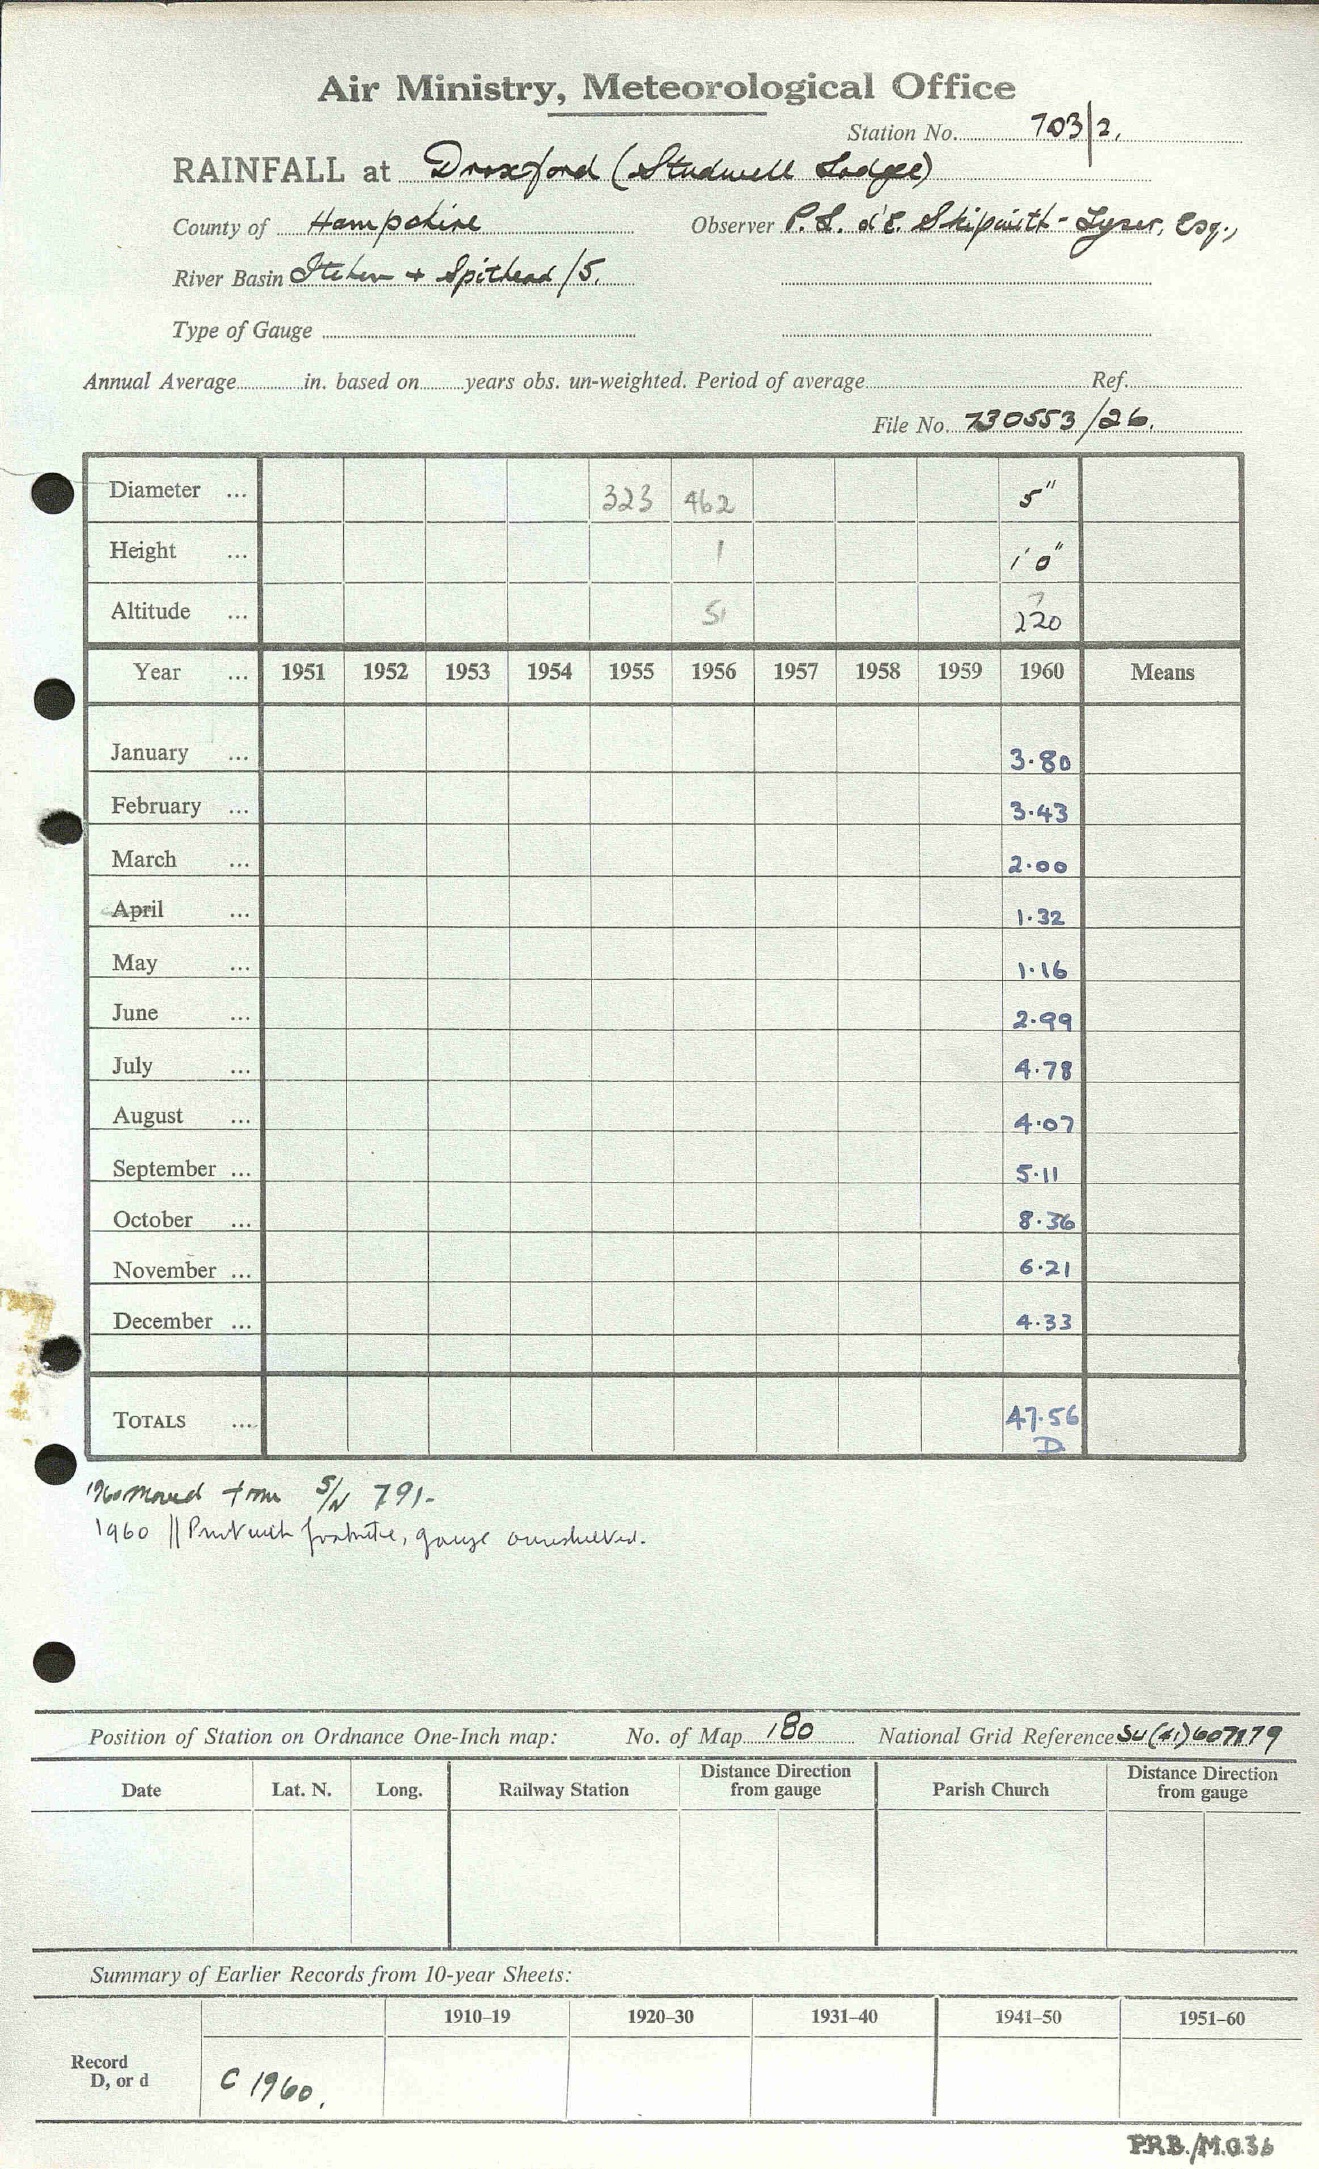 Air Ministry, Meteorological Office
Station No. 703/2.
RAINFALL at Droxford (Studwell Lodge)
County of Hampshire Observer P. L. d'E. Skipwith-Tyser, Esq.,
River Basin Itchen + Spithead /5.
Type of Gauge
Annual Average in. based on years obs. un-weighted. Period of average Ref.
File No. 730553/26.
Diameter ... 323 462 5"
Height ... 1 1' 0"
Altitude ... 51 ? 220
Year ... 1951 1952 1953 1954 1955 1956 1957 1958 1959 1960 Means
January ... 3.80
February ... 3.43
March ... 2.00
April ... 1.32
May ... 1.16
June ... 2.99
July ... 4.78
August ... 4.07
September ... 5.11
October ... 8.36
November ... 6.21
December ... 4.33
TOTALS ... 47.56
D
1960 moved from S/N 791-
1960 || gauge
Position of Station on Ordnance One-Inch map: No. of Map 180 National Grid Reference SU(41)
Date Lat. N. Long. Railway Station Distance Direction from gauge Parish Church Distance Direction from gauge
Summary of Earlier Records from 10-year Sheets:
1910–19 1920–30 1931–40 1941–50 1951–60
Record
D, or d C 1960.
P.R.B./M.O.36